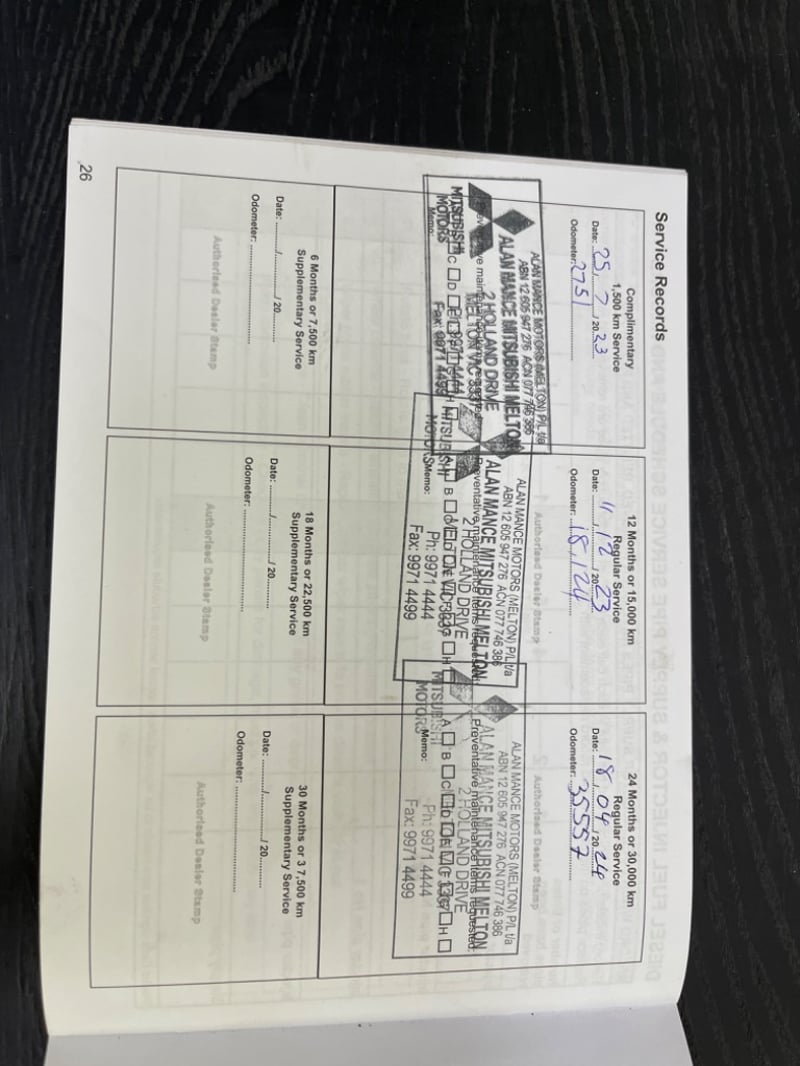 Service Records
Complimentary
1,500 km Service
Date: 25 / 7 / 2023
Odometer: 2751
ALAN MANCE MOTORS (MELTON) P/L t/a
ABN 12 605 947 276 ACN 077 746 386
ALAN MANCE MITSUBISHI MELTON
2 HOLLAND DRIVE
MELTON VIC 3337
MITSUBISHI
MOTORS
Memo:
Ph: 9971 4444
Fax: 9971 4499
12 Months or 15,000 km
Regular Service
Date: 11 / 12 / 2023
Odometer: 18,124
Authorised Dealer Stamp
ALAN MANCE MOTORS (MELTON) P/L t/a
ABN 12 605 947 276 ACN 077 746 386
ALAN MANCE MITSUBISHI MELTON
Preventative maintenance items requested:
2 HOLLAND DRIVE
MELTON VIC 3337
A B H
MITSUBISHI
MOTORS
Memo:
Ph: 9971 4444
Fax: 9971 4499
24 Months or 30,000 km
Regular Service
Date: 18 / 04 / 2024
Odometer: 35557
Authorised Dealer Stamp
ALAN MANCE MOTORS (MELTON) P/L t/a
ABN 12 605 947 276 ACN 077 746 386
ALAN MANCE MITSUBISHI MELTON
Preventative maintenance items requested:
2 HOLLAND DRIVE
A B C D H
MITSUBISHI
MOTORS
Memo:
Ph: 9971 4444
Fax: 9971 4499
6 Months or 7,500 km
Supplementary Service
Date: ......../......../ 20........
Odometer: ........................
Authorised Dealer Stamp
18 Months or 22,500 km
Supplementary Service
Date: ......../......../ 20........
Odometer: ........................
Authorised Dealer Stamp
30 Months or 3 7,500 km
Supplementary Service
Date: ......../......../ 20........
Odometer: ........................
Authorised Dealer Stamp
26